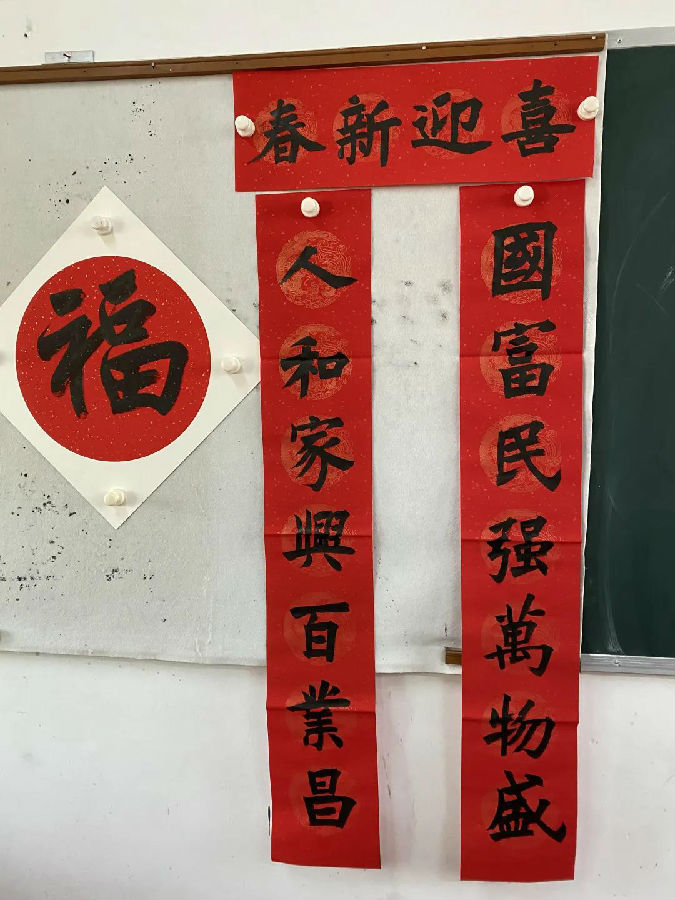 喜迎新春
國富民强萬物盛
人和家興百業昌
福